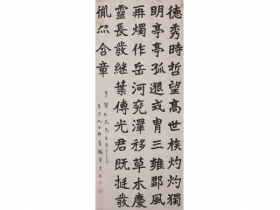 德秀時哲望高世族灼灼獨
明亭亭孤邈式胄三雍鄒風
再燭作岳河兗澤移草木慶
靈長發繼葉傳光君既挺發
胤亦含章